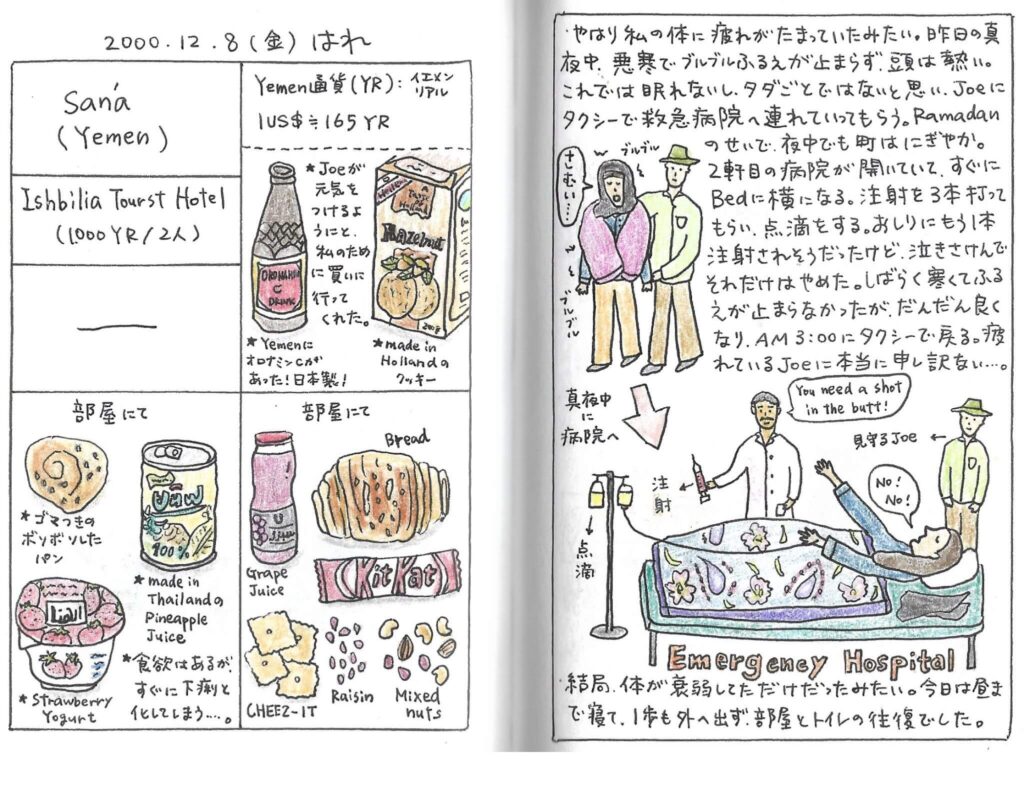 2000.12.8(金)はれ
Saná
(Yemen)
Yemen通貨(YR):イエメンリアル
1US$≒165YR
Ishbilia Tourst Hotel
(1.000YR/2人)
*Joeが
元気を
つけるよ
うにと、
私のため
に買いに
行って
くれた。
DRINK
A
Taste
of
Holland
Hazelnut
*Yemenに
オロナミンCが
あった!日本製!
*made in
Hollandの
クッキー
部屋にて
*ゴマつきの
ボソボソした
パン
100%
*made in
Thailandの
Pineapple
Juice
*Strawberry
Yogurt
*食欲はあるが、
すぐに下痢と
化してしまう....。
部屋にて
Bread
Grape
Juice
KitKat
CHEEZ-IT
Raisin
Mixed
nuts
やはり私の体に疲れがたまっていたみたい。昨日の真
夜中、悪寒でブルブルふるえが止まらず、頭は熱い。
これでは眠れないし、タダごとではないと思い、Joeに
タクシーで救急病院へ連れていってもらう。Ramadan
のせいで、夜中でも町はにぎやか。
2軒目の病院が開いていて、すぐに
Bedに横になる。注射を3本打って
もらい、点滴をする。おしりにもう1本
注射されそうだったけど、泣きさけんで
それだけはやめた。しばらく寒くてふる
えが止まらなかったが、だんだん良く
なり、AM3:00にタクシーで戻る。疲
れているJoeに本当に申し訳ない…。
さむい…
ブルブル
ブルブル
真夜中
に
病院へ
You need a shot
in the butt!
見守るJoe
注射
No!
No!
点滴
Emergency Hospital
結局、体が衰弱してただけだったみたい。今日は昼ま
で寝て、1歩も外へ出ず、部屋とトイレの往復でした。